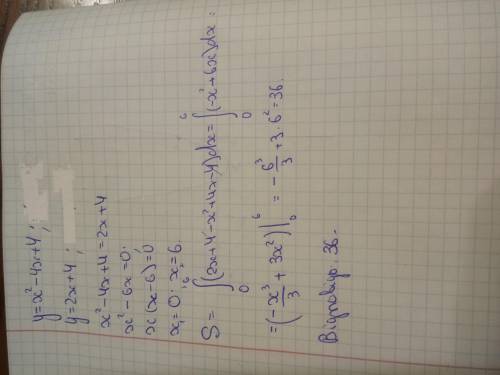 y = x² - 4x + 4 ;
y = 2x + 4 ;
x² - 4x + 4 = 2x + 4
x² - 6x = 0 ;
x (x - 6) = 0 ;
x₁ = 0 ; x₂ = 6.
S = ∫₀⁶ (2x + 4 - x² + 4x - 4) dx = ∫₀⁶ (-x² + 6x) dx =
= (-x³/3 + 3x²) |₀⁶ = - 6³/3 + 3 · 6² = 36.
Відповідь: 36.